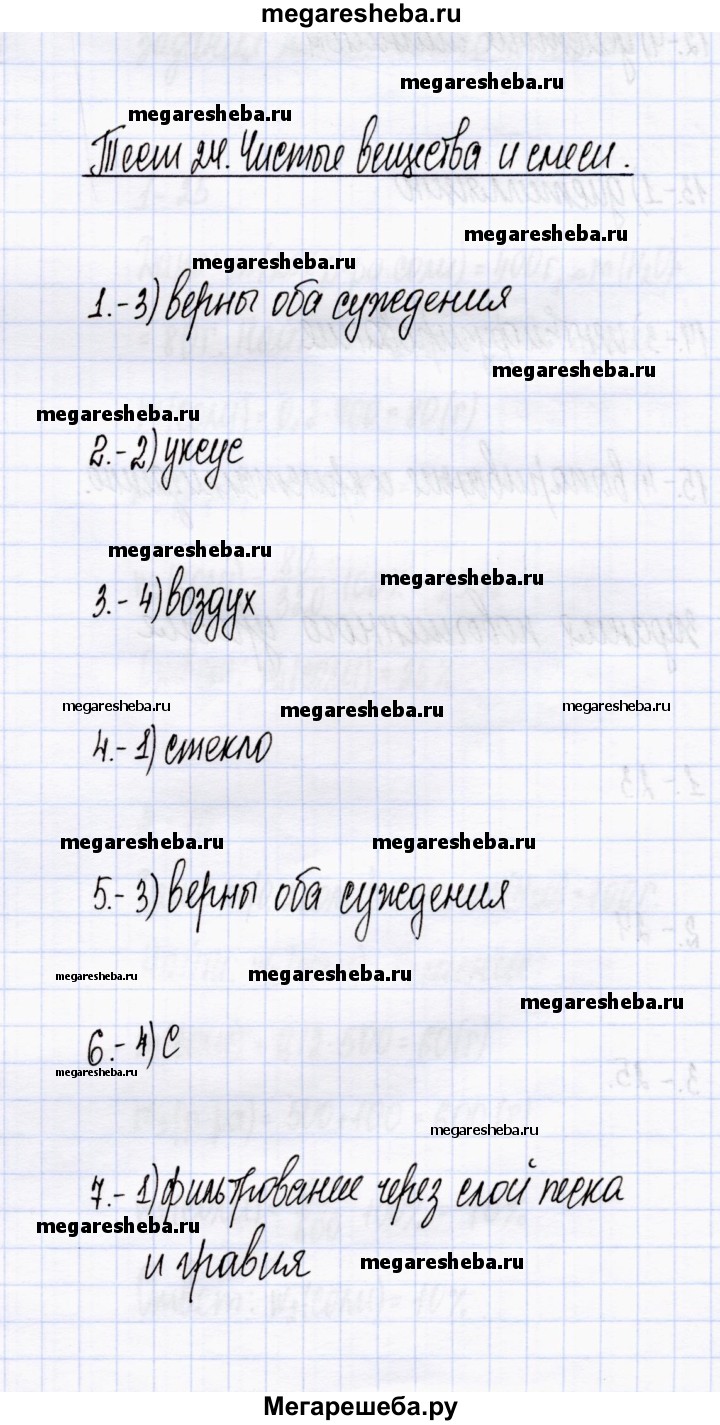 megaresheba.ru
megaresheba.ru
megaresheba.ru
Тест 24. Чистые вещества и смеси.
megaresheba.ru
megaresheba.ru
1.-3) верны оба суждения
megaresheba.ru
megaresheba.ru
2.-2) уксус
megaresheba.ru
megaresheba.ru
3.-4) воздух
megaresheba.ru megaresheba.ru megaresheba.ru
4.-1) стекло
megaresheba.ru megaresheba.ru
5.-3) верны оба суждения
megaresheba.ru megaresheba.ru
megaresheba.ru
6.-4) С
megaresheba.ru
megaresheba.ru
7.-1) фильтрование через слой песка
megaresheba.ru
и гравия megaresheba.ru
Мегарешеба.ру